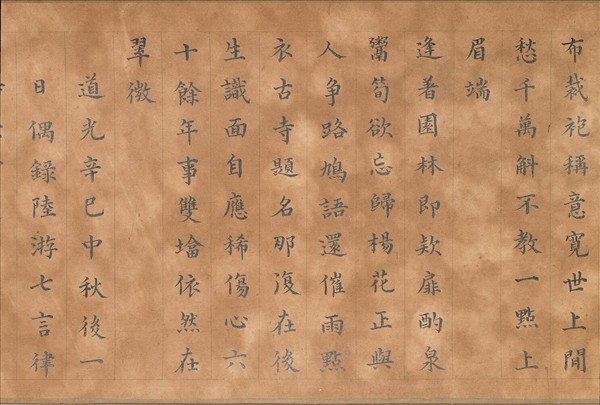 布裁袍稱意寬世上閒
愁千萬斛不教一點上
眉端
逢著園林即款扉酌泉
鬻筍欲忘歸楊花正與
人爭路鳩語還催雨點
衣古寺題名那復在後
生識面自應稀傷心六
十餘年事雙墖依然在
翠微
道光辛巳中秋後一
日偶錄陸游七言律